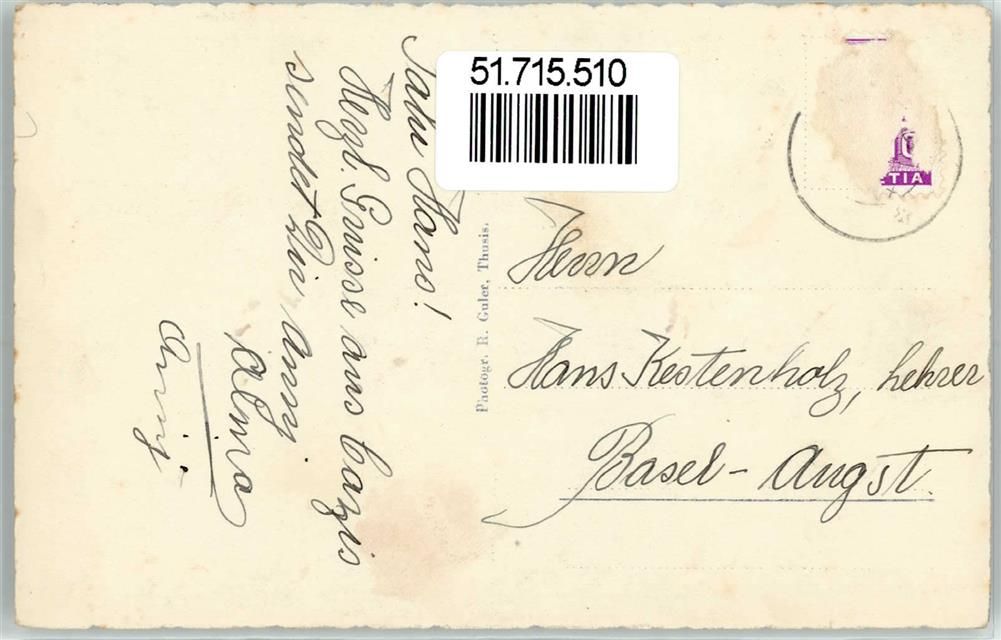 51.715.510
Salü Hans!
Herzl. Grüsse aus Cazis
sendet Dir Anny.
Alma
Anny
Photogr. R. Guler, Thusis.
TIA
Herrn
Hans Kestenholz, Lehrer
Basel - Augst.